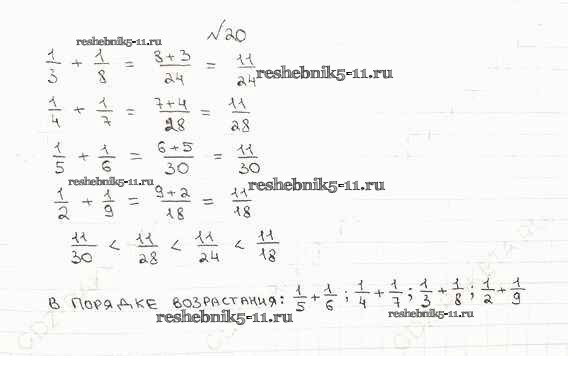 №20
reshebnik5-11.ru
1/3 + 1/8 = 8+3/24 = 11/24 reshebnik5-11.ru
1/4 + 1/7 = 7+4/28 = 11/28
1/5 + 1/6 = 6+5/30 = 11/30
reshebnik5-11.ru reshebnik5-11.ru
1/2 + 1/9 = 9+2/18 = 11/18
11/30 < 11/28 < 11/24 < 11/18
В ПОРЯДКЕ ВОЗРАСТАНИЯ: 1/5 + 1/6 ; 1/4 + 1/7 ; 1/3 + 1/8 ; 1/2 + 1/9
reshebnik5-11.ru reshebnik5-11.ru